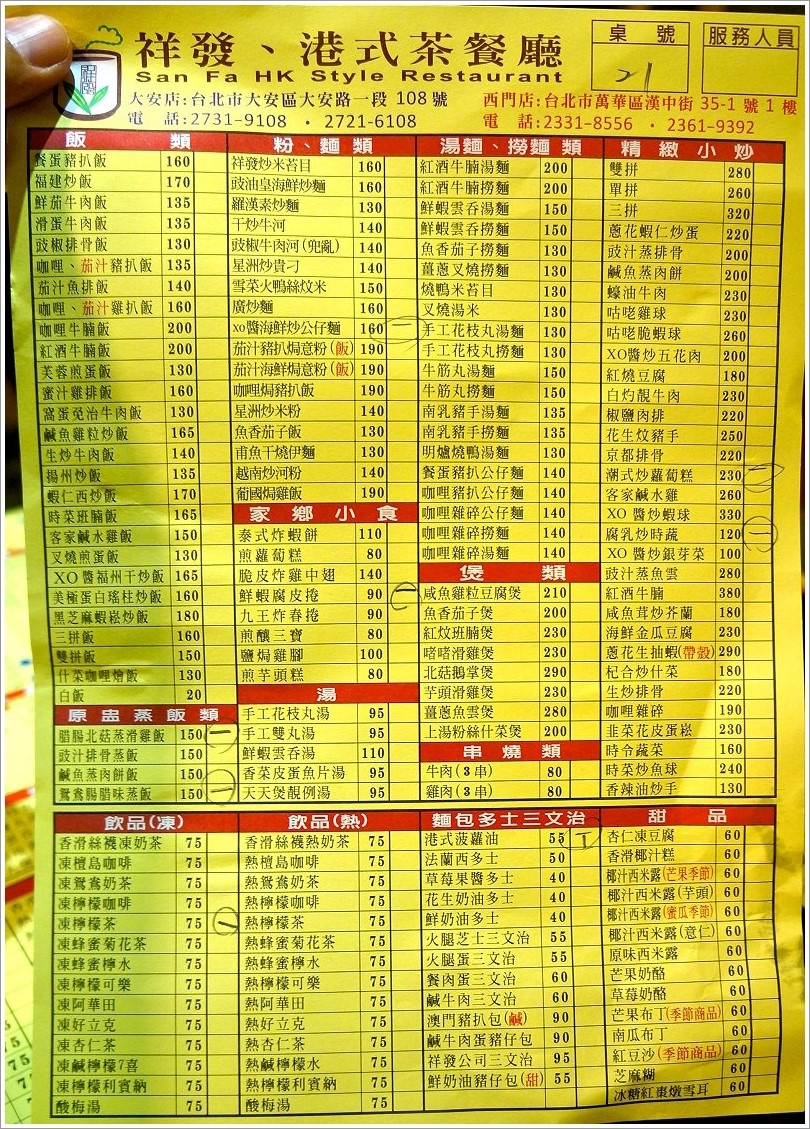 祥發、港式茶餐廳
San Fa HK Style Restaurant
桌號
21
服務人員
大安店:台北市大安區大安路一段 108 號
電 話:2731-9108 ・ 2721-6108
西門店:台北市萬華區漢中街 35-1 號 1 樓
電 話:2331-8556 ・ 2361-9392
飯 類
餐蛋豬扒飯 160
福建炒飯 170
鮮茄牛肉飯 135
滑蛋牛肉飯 135
豉椒排骨飯 130
咖哩、茄汁豬扒飯 135
茄汁魚排飯 140
咖哩、茄汁雞扒飯 160
咖哩牛腩飯 200
紅酒牛腩飯 200
芙蓉煎蛋飯 130
蜜汁雞排飯 160
窩蛋免治牛肉飯 130
鹹魚雞粒炒飯 165
生炒牛肉飯 140
揚州炒飯 135
蝦仁西炒飯 170
時菜班腩飯 165
客家鹹水雞飯 150
叉燒煎蛋飯 130
XO醬福州干炒飯 165
美極蛋白瑤柱炒飯 160
黑芝麻蝦崧炒飯 180
三拼飯 160
雙拼飯 150
什菜咖哩燴飯 130
白飯 20
原盅蒸飯類
腊腸北菇蒸滑雞飯 150
豉汁排骨蒸飯 150
鹹魚蒸肉餅飯 150
鴛鴦腸腊味蒸飯 150
粉、麵類
祥發炒米苔目 160
豉油皇海鮮炒麵 160
羅漢素炒麵 130
干炒牛河 140
豉椒牛肉河(兜亂) 140
星洲炒貴刁 140
雪菜火鴨絲炆米 150
廣炒麵 160
xo醬海鮮炒公仔麵 160
茄汁豬扒焗意粉(飯) 190
茄汁海鮮焗意粉(飯) 190
咖哩焗豬扒飯 190
星洲炒米粉 140
魚香茄子飯 130
甫魚干燒伊麵 130
越南炒河粉 140
葡國焗雞飯 190
家鄉小食
泰式炸蝦餅 110
煎蘿蔔糕 80
脆皮炸雞中翅 140
鮮蝦腐皮捲 90
九王炸春捲 90
煎釀三寶 80
鹽焗雞腳 100
煎芋頭糕 80
湯
手工花枝丸湯 95
手工雙丸湯 95
鮮蝦雲吞湯 110
香菜皮蛋魚片湯 95
天天煲靚例湯 95
湯麵、撈麵類
紅酒牛腩湯麵 200
紅酒牛腩撈麵 200
鮮蝦雲吞湯麵 150
鮮蝦雲吞撈麵 150
魚香茄子撈麵 130
薑蔥叉燒撈麵 130
燒鴨米苔目 130
叉燒湯米 130
手工花枝丸湯麵 130
手工花枝丸撈麵 130
牛筋丸湯麵 150
牛筋丸撈麵 150
南乳豬手湯麵 135
南乳豬手撈麵 135
明爐燒鴨湯麵 130
餐蛋豬扒公仔麵 140
咖哩豬扒公仔麵 140
咖哩雜碎公仔麵 140
咖哩雜碎撈麵 140
咖哩雜碎湯麵 140
煲類
咸魚雞粒豆腐煲 210
魚香茄子煲 200
紅炆班腩煲 230
啫啫滑雞煲 230
北菇鵝掌煲 290
芋頭滑雞煲 230
薑蔥魚雲煲 280
上湯粉絲什菜煲 200
串燒類
牛肉(3串) 80
雞肉(3串) 80
精緻小炒
雙拼 280
單拼 260
三拼 320
蔥花蝦仁炒蛋 220
豉汁蒸排骨 200
鹹魚蒸肉餅 200
蠔油牛肉 230
咕咾雞球 230
咕咾脆蝦球 260
XO醬炒五花肉 200
紅燒豆腐 180
白灼靚牛肉 230
椒鹽肉排 220
花生炆豬手 250
京都排骨 220
潮式炒蘿蔔糕 230
客家鹹水雞 260
XO 醬炒蝦球 330
腐乳炒時蔬 120
XO 醬炒銀芽菜 100
豉汁蒸魚雲 280
紅酒牛腩 380
咸魚茸炒芥蘭 180
海鮮金瓜豆腐 230
蔥花生抽蝦(帶殼) 290
杞合炒什菜 180
生炒排骨 220
咖哩雜碎 190
韭菜花皮蛋崧 230
時令蔬菜 160
時菜炒魚球 240
香辣油炒手 130
飲品(凍)
香滑絲襪凍奶茶 75
凍檀島咖啡 75
凍鴛鴦奶茶 75
凍檸檬咖啡 75
凍檸檬茶 75
凍蜂蜜菊花茶 75
凍蜂蜜檸水 75
凍檸檬可樂 75
凍阿華田 75
凍好立克 75
凍杏仁茶 75
凍鹹檸檬7喜 75
凍檸檬利賓納 75
酸梅湯 75
飲品(熱)
香滑絲襪熱奶茶 75
熱檀島咖啡 75
熱鴛鴦奶茶 75
熱檸檬咖啡 75
熱檸檬茶 75
熱蜂蜜菊花茶 75
熱蜂蜜檸水 75
熱檸檬可樂 75
熱阿華田 75
熱好立克 75
熱杏仁茶 75
熱鹹檸檬水 75
熱檸檬利賓納 75
酸梅湯 75
麵包多士三文治
港式菠蘿油 55
法蘭西多士 50
草莓果醬多士 40
花生奶油多士 40
鮮奶油多士 40
火腿芝士三文治 55
火腿蛋三文治 55
餐肉蛋三文治 60
鹹牛肉三文治 60
澳門豬扒包(鹹) 90
鹹牛肉蛋豬仔包 90
祥發公司三文治 95
鮮奶油豬仔包(甜) 55
甜品
杏仁凍豆腐 60
香滑椰汁糕 60
椰汁西米露(芒果季節) 60
椰汁西米露(芋頭) 60
椰汁西米露(蜜瓜季節) 60
椰汁西米露(意仁) 60
原味西米露 60
芒果奶酪 60
草莓奶酪 60
芒果布丁(季節商品) 60
南瓜布丁 60
紅豆沙(季節商品) 60
芝麻糊 60
冰糖紅棗燉雪耳 60